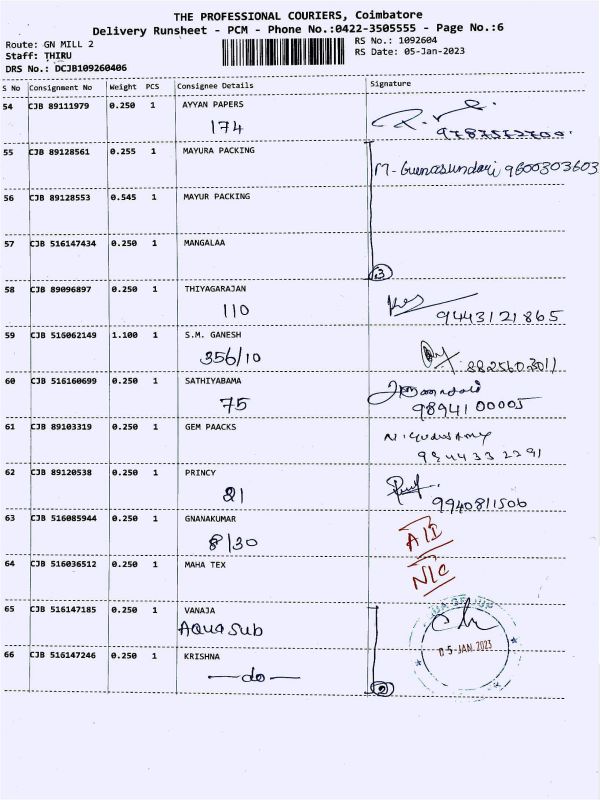 THE PROFESSIONAL COURIERS, Coimbatore
Delivery Runsheet - PCM - Phone No.:0422-3505555 - Page No.:6
Route: GN MILL 2
RS No.: 1092604
Staff: THIRU
RS Date: 05-Jan-2023
DRS No.: DCJB109260406
S No Consignment No Weight PCS Consignee Details Signature
54 CJB 89111979 0.250 1 AYYAN PAPERS
174
55 CJB 89128561 0.255 1 MAYURA PACKING
M- Gunasundari 9600303603
56 CJB 89128553 0.545 1 MAYUR PACKING
57 CJB 516147434 0.250 1 MANGALAA
3
58 CJB 89096897 0.250 1 THIYAGARAJAN
110 9443121865
59 CJB 516062149 1.100 1 S.M. GANESH
356/10 8825603011
60 CJB 516160699 0.250 1 SATHIYABAMA
75 9894100005
61 CJB 89103319 0.250 1 GEM PAACKS
9944332291
62 CJB 89120538 0.250 1 PRINCY
21 9940811506
63 CJB 516085944 0.250 1 GNANAKUMAR
8/30 A/I
64 CJB 516036512 0.250 1 MAHA TEX
N/C
65 CJB 516147185 0.250 1 VANAJA
Aqua sub
05 JAN 2023
66 CJB 516147246 0.250 1 KRISHNA
—do—
2